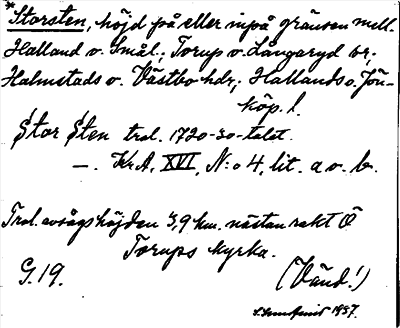 *Storsten, höjd på eller inpå gränsen mell.
Halland o. Smål.; Torup o. Långaryd sr;
Halmstads o. Västbo hdr; Hallands o. Jön-
köp. l.
Stor Sten trol. 1720-30-talet.
—. Kr.A. XVI, N:o 4, lit. a o. b.
Trol. avsågs höjden 3,9 km. nästan rakt Ö
Torups kyrka.
G. 19.
(Vänd!)
1937.